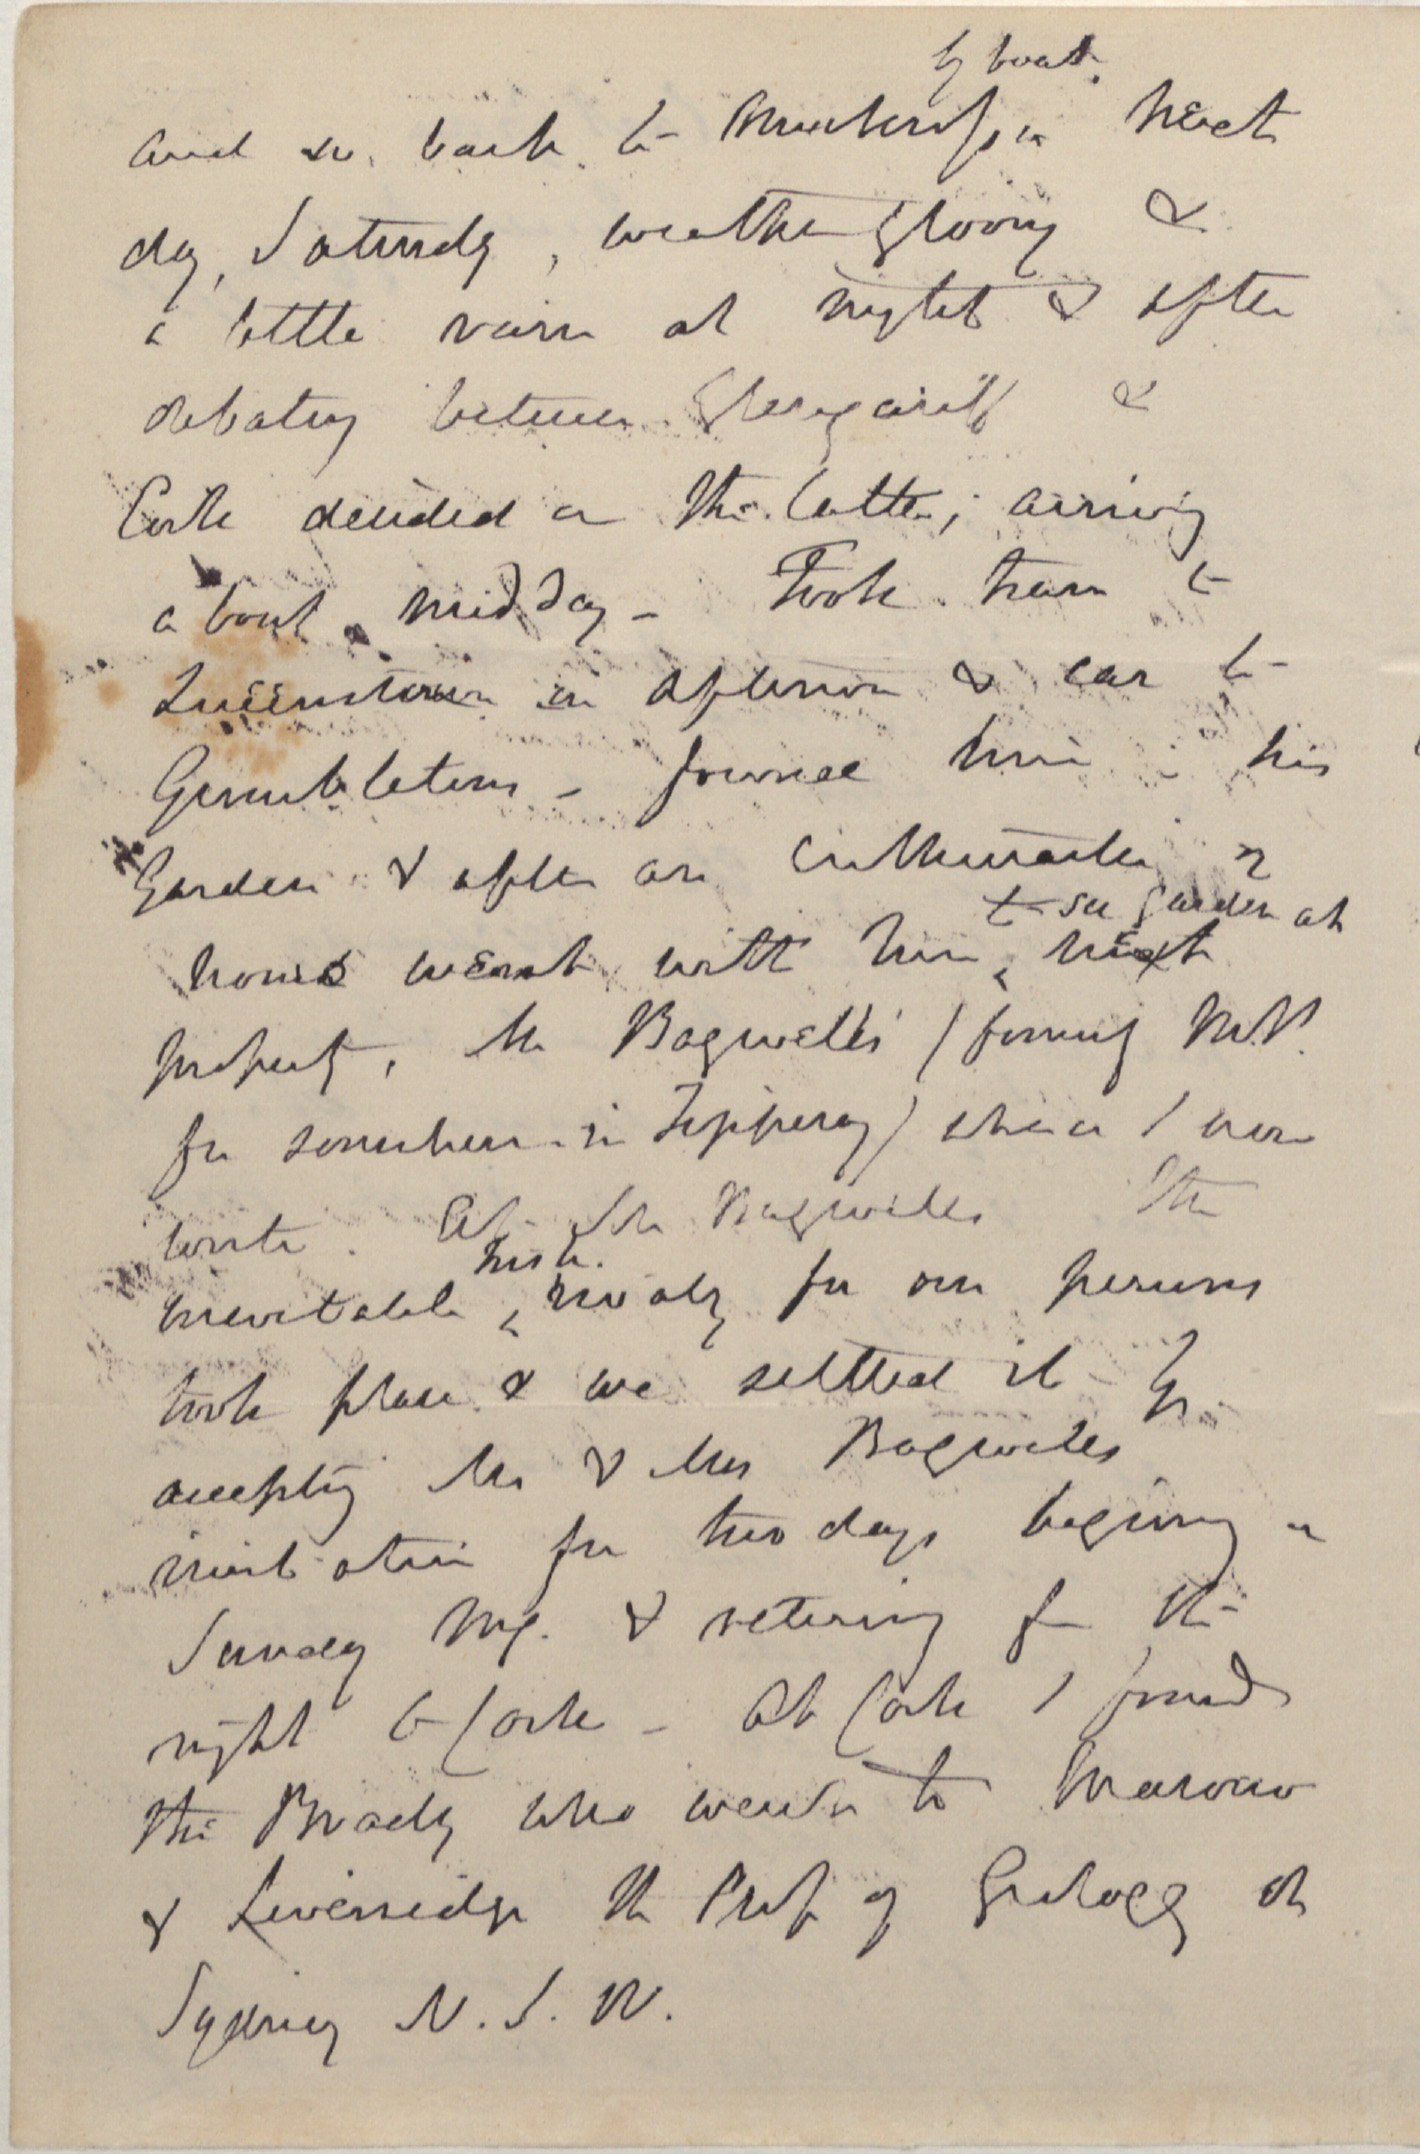 by boat.
and so back to Muckross, Next
day, Saturday, weather gloomy &
a little rain at night & after
debating between Glengariff &
Cork decided on the latter; arriving
about midday - Took train to
Queenstown in afternoon & car to
Gumbletons - found him in his
Garden & after an
to see garden at
house went with him next
property, Mr Bagwell's (formerly M.P.
for somewhere in Tipperary) where I now
write. At Mr Bagwells the
Irish
inevitable rivalry for our persons
took place & we settled it by
accepting Mr & Mrs Bagwells
invitation for two days beginning on
Sunday Mg. & returning for the
night to Cork - At Cork I found
the Brady who went to Morocco
& Liversidge the Prof of Geology at
Sydney N. S. W.